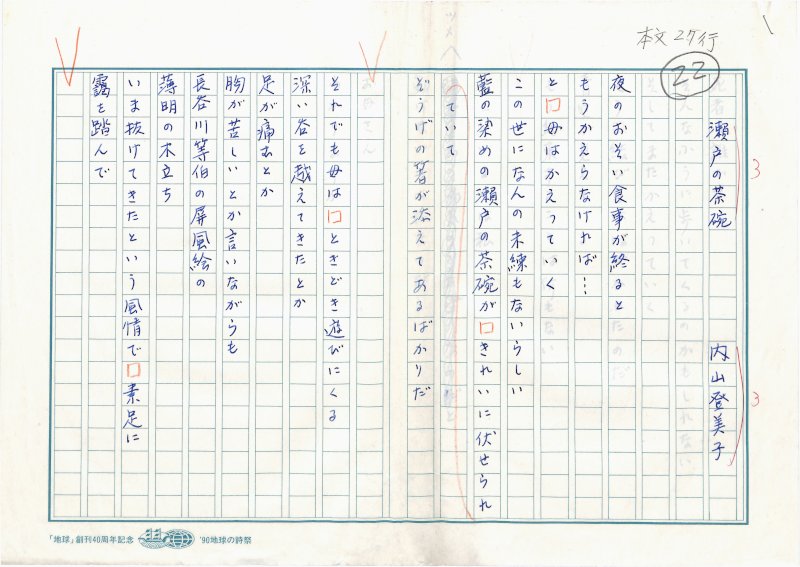 本文27行
22
瀬戸の茶碗
内山登美子
夜のおそい食事が終ると
もうかえらなければ…
と□母はかえっていく
この世になんの未練もないらしい
藍の染めの瀬戸の茶碗が□きれいに伏せられ
ていて
ぞうげの箸が添えてあるばかりだ
それでも母は□ときどき遊びにくる
深い谷を越えてきたとか
足が痛むとか
胸が苦しいとか言いながらも
長谷川等伯の屏風絵の
薄明の木立ち
いま抜けてきたという風情で□素足に
靄を踏んで
3
3
「地球」創刊40周年記念
'90地球の詩祭